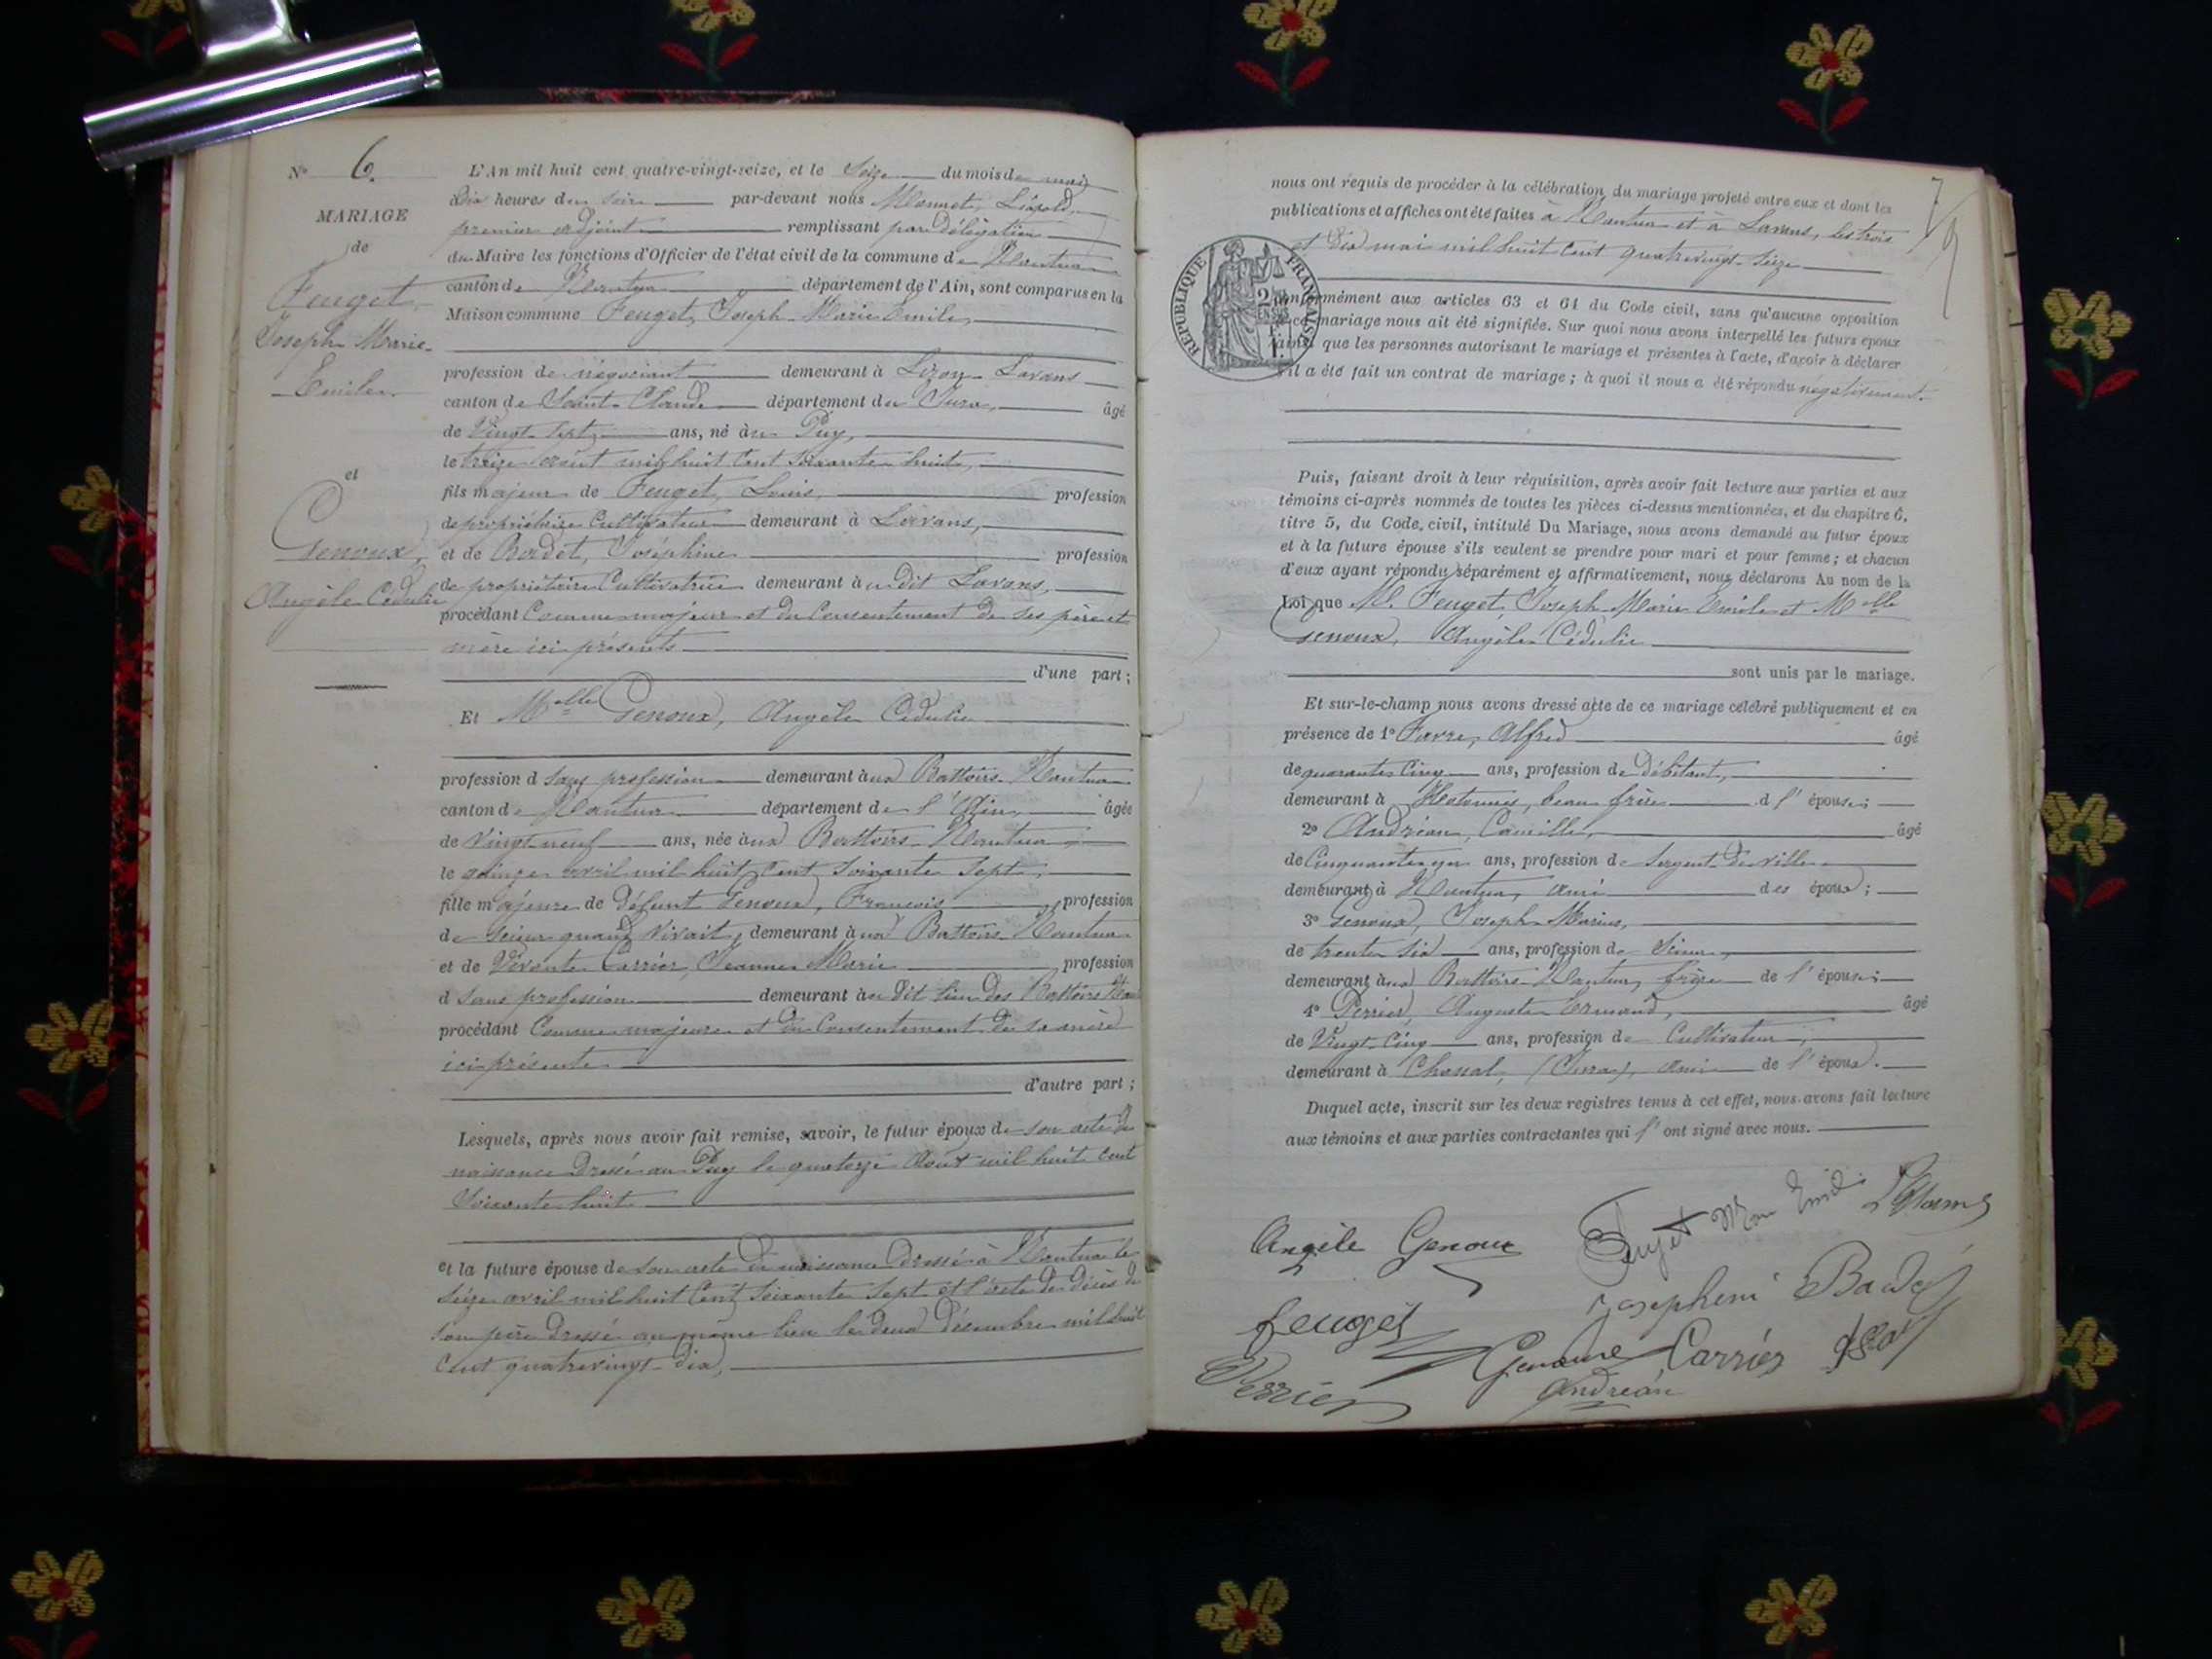 Nº 6.
MARIAGE
de
Feuget,
Joseph Marie
Emile.
et
Genoux,
Angèle Cédulie
L'An mil huit cent quatre-vingt-seize, et le Seize du mois de mai
Dix heures du soir par-devant nous Monnet, Léopold,
premier adjoint remplissant par Délégation
du Maire les fonctions d'Officier de l'état civil de la commune de Nantua
canton de Nantua département de l'Ain, sont comparus en la
Maison commune Feuget, Joseph Marie Emile,
profession de négociant demeurant à Lizon-Lavans
canton de Saint-Claude département du Jura, âgé
de Vingt-sept ans, né au Puy,
le treize août mil huit Cent Soixante huit,
fils majeur de Feuget, Louis, profession
de propriétaire Cultivateur demeurant à Lavans,
et de Badet, Joséphine profession
de propriétaire Cultivatrice demeurant au dit Lavans,
procédant Comme majeur et du Consentement de ses père et
mère ici présents
d'une part;
Et Melle Genoux, Angèle Cédulie
profession d Sans profession demeurant aux Battoirs-Nantua
canton de Nantua département de l'Ain, âgée
de Vingt-neuf ans, née aux Battoirs-Nantua,
le quinze avril mil huit Cent Soixante Sept,
fille majeure de Défunt Genoux, François profession
de Scieur quand Vivait, demeurant aux Battoirs-Nantua
et de Vivante Carrier, Jeanne Marie profession
d Sans profession demeurant au dit lieu des Battoirs
procédant Comme majeure et du Consentement de sa mère
ici présente
d'autre part;
Lesquels, après nous avoir fait remise, savoir, le futur époux de son acte de
naissance Dressé au Puy le quatorze Août mil huit Cent
Soixante huit
et la future épouse de Son acte de naissance Dressé à Nantua le
Seize avril mil huit Cent Soixante Sept et l'acte de Décès de
Son père Dressé au même lieu le deux Décembre mil huit
Cent quatrevingt-dix,
nous ont requis de procéder à la célébration du mariage projeté entre eux et dont les
publications et affiches ont été faites à Nantua et à Lavans, les trois
et Dix mai mil huit Cent quatrevingt-seize
RÉPUBLIQUE FRANÇAISE
conformément aux articles 63 et 64 du Code civil, sans qu'aucune opposition
à ce mariage nous ait été signifiée. Sur quoi nous avons interpellé les futurs époux
ainsi que les personnes autorisant le mariage et présentes à l'acte, d'avoir à déclarer
s'il a été fait un contrat de mariage; à quoi il nous a été répondu négativement.
Puis, faisant droit à leur réquisition, après avoir fait lecture aux parties et aux
témoins ci-après nommés de toutes les pièces ci-dessus mentionnées, et du chapitre 6,
titre 5, du Code civil, intitulé Du Mariage, nous avons demandé au futur époux
et à la future épouse s'ils veulent se prendre pour mari et pour femme; et chacun
d'eux ayant répondu séparément et affirmativement, nous déclarons Au nom de la
Loi que M. Feuget, Joseph Marie Emile et Melle
Genoux, Angèle Cédulie
sont unis par le mariage.
Et sur-le-champ nous avons dressé acte de ce mariage célébré publiquement et en
présence de 1º Favre, Alfred âgé
de quarante Cinq ans, profession de Débitant,
demeurant à Hotonnes, beau frère d l'épouse;
2º Andréan, Camille, âgé
de Cinquante ans, profession de Sergent de ville
demeurant à Nantua, ami des époux;
3º Genoux, Joseph Marius,
de trente six ans, profession de Scieur,
demeurant aux Battoirs-Nantua, frère de l'épouse;
4º Perrier, Auguste Armand, âgé
de Vingt-Cinq ans, profession de Cultivateur,
demeurant à Chassal, (Jura), ami de l'époux.
Duquel acte, inscrit sur les deux registres tenus à cet effet, nous avons fait lecture
aux témoins et aux parties contractantes qui l'ont signé avec nous.
Angèle Genoux Feuget Emile
Joséphine Badet
feuget
Genoux Carrier
Perrier Andréan